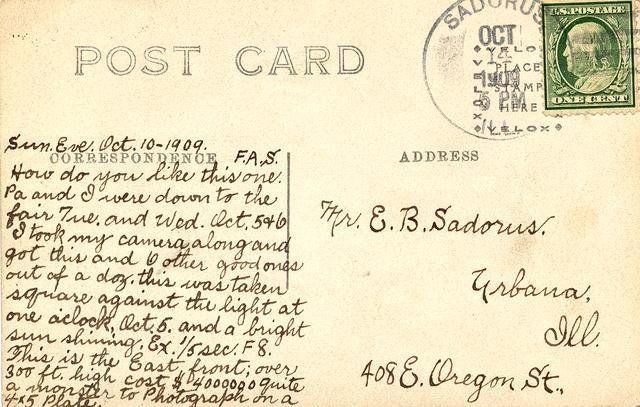 POST CARD
SADORUS
OCT
1909
5 PM
ILL.
VELOX
PLACE
STAMP
HERE
VELOX
U.S. POSTAGE
ONE CENT
Sun. Eve. Oct. 10-1909.
CORRESPONDENCE
F.A.S.
ADDRESS
How do you like this one.
Pa and I were down to the
fair Tue. and Wed. Oct. 5+6
I took my camera along and
got this and 6 other good ones
out of a doz. this was taken
square against the light at
one o'clock, Oct. 5. and a bright
sun shining. Ex. 1/5 sec. F 8.
This is the East front; over
300 ft. high cost $4000000 quite
a monster to Photograph on a
4x5 Plate.
Mr. E. B. Sadorus.
Urbana,
Ill.
408 E. Oregon St.,